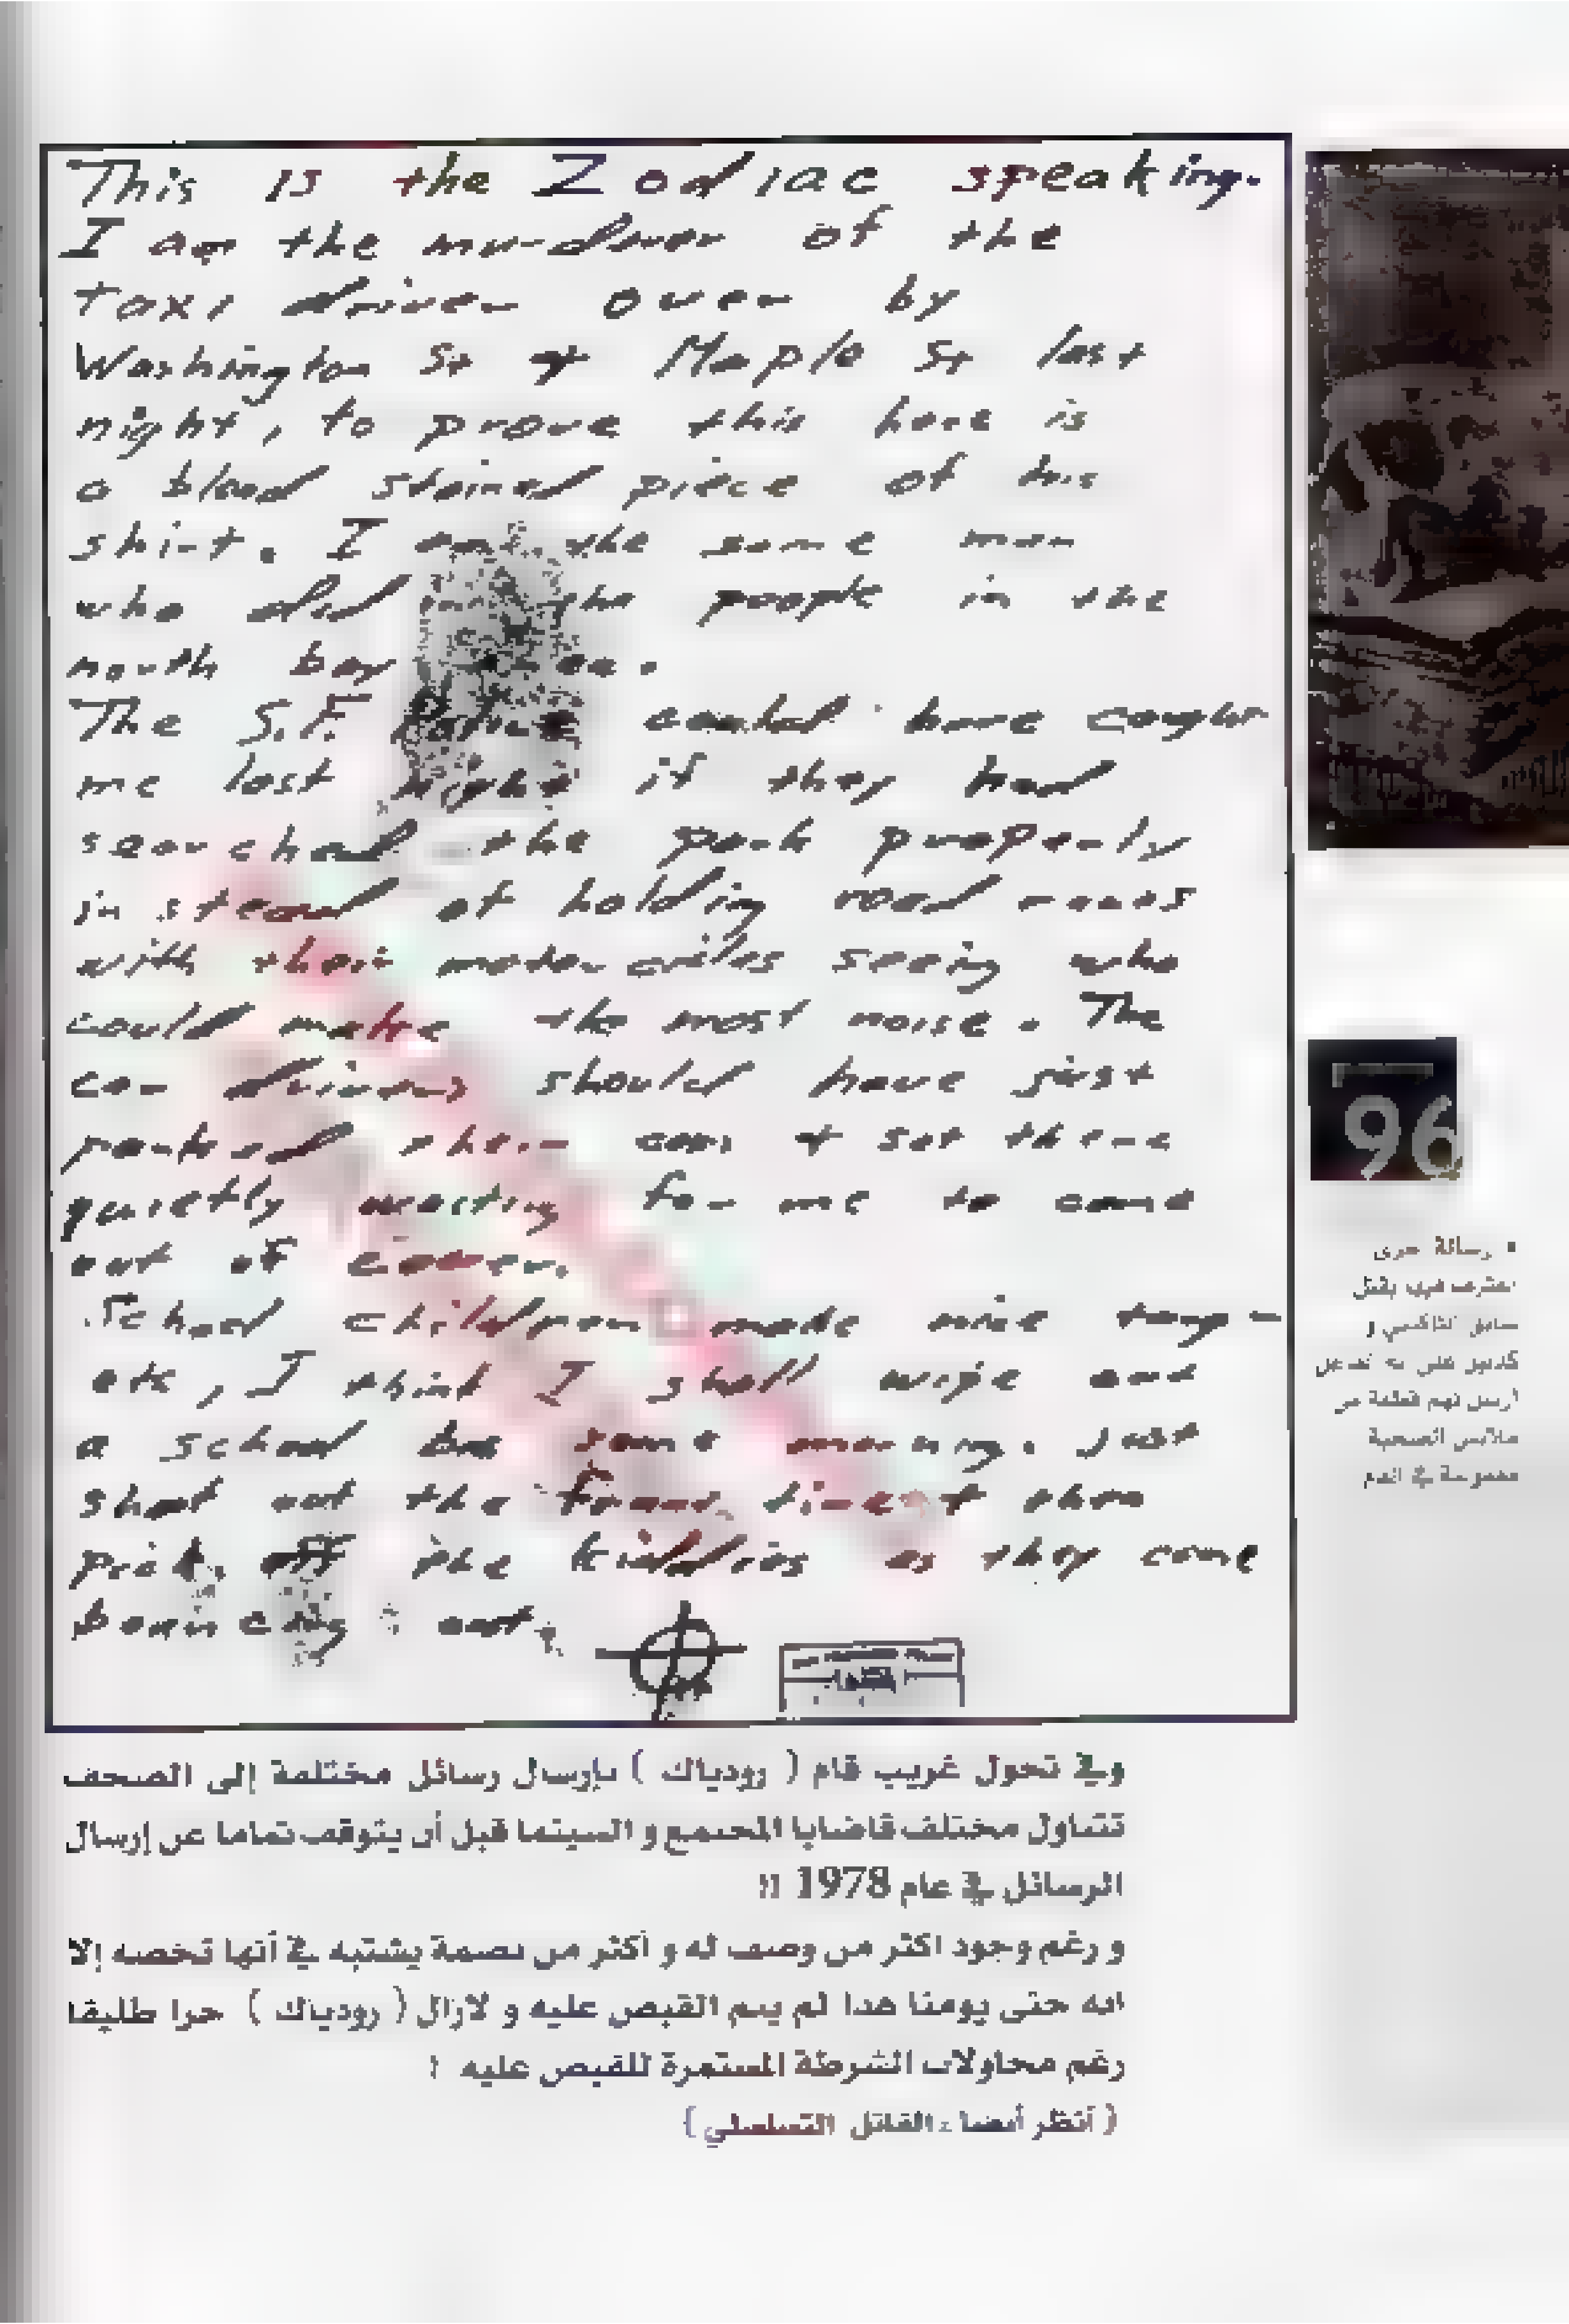 This is the Zodiac speaking.
I am the murderer of the
taxi driver over by
Washington St + Maple St last
night, to prove this here is
a blood stained piece of his
shirt. I am the same man
who did in the people in the
north bay area.
The S.F. Police could have caught
me last night if they had
searched the park properly
instead of holding road races
with their motorcicles seeing who
could make the most noise. The
car drivers should have just
parked their cars + sat there
quietly waiting for me to come
out of cover.
School children make nice targ-
ets, I think I shall wipe out
a school bus some morning. Just
shoot out the front tire + then
pick off the kiddies as they come
bouncing out.
96
رسالة أخرى
يعترف فيها بقتل
سائق التاكسي و
كدليل على ما
أرسل لهم قطعة من
ملابس الضحية
مغموسة في الدم
وفي تحول غريب قام ( زودياك ) بإرسال رسائل مختلفة إلى الصحف
تتناول مختلف قاضايا المجتمع و السينما قبل أن يتوقف تماما عن إرسال
الرسائل في عام 1978 !!
و رغم وجود اكثر من وصف له و أكثر من بصمة يشتبه في أنها تخصه إلا
انه حتى يومنا هذا لم يتم القبض عليه و لازال ( زودياك ) حرا طليقا
رغم محاولات الشرطة المستمرة للقبض عليه !
( أنظر أيضا : القاتل التسلسلي )